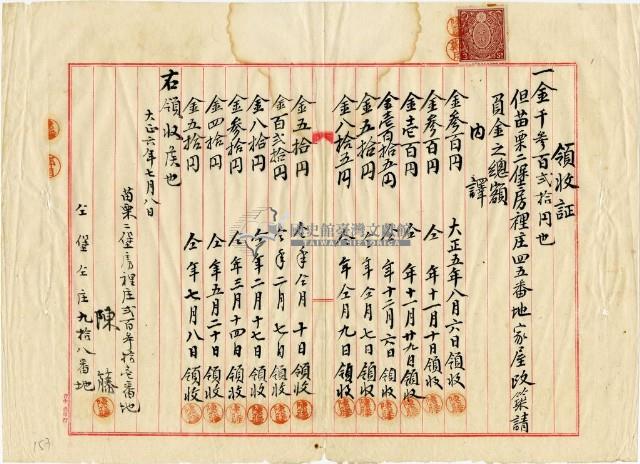 領收証
一金千参百弐拾円也
但苗栗二堡房裡庄四五番地家屋改築請
負金之總額
內譯
金参百円 大正五年八月六日領收
金参百円 仝年十一月十日領收
金壱百円 仝年十一月廿九日領收
金壱百拾五円 仝年十二月六日領收
金五拾円 仝年仝月七日領收
金八拾五円 仝年仝月九日領收
金五拾円 仝年仝月十日領收
金百弐拾円 仝年二月七日領收
金八拾円 仝年二月十七日領收
金参拾円 仝年三月十四日領收
金四拾円 仝年五月二十日領收
金五拾円 仝年七月八日領收
右領收候也
大正六年七月八日
苗栗二堡房裡庄弐百番地
陳籐
仝堡仝庄九拾八番地
國史館臺灣文獻館
TAIWAN HISTORICA
153